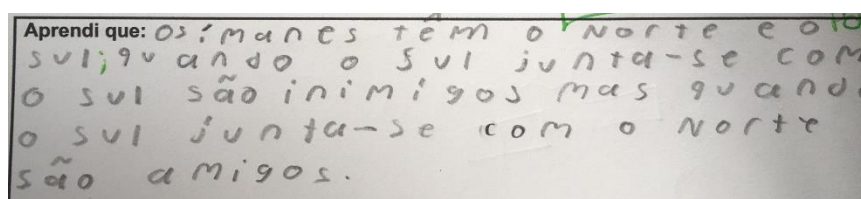 Aprendi que: Os ímanes têm o Norte e o
sul; quando o sul junta-se com
o sul são inimigos mas quand
o sul junta-se com o Norte
são amigos.